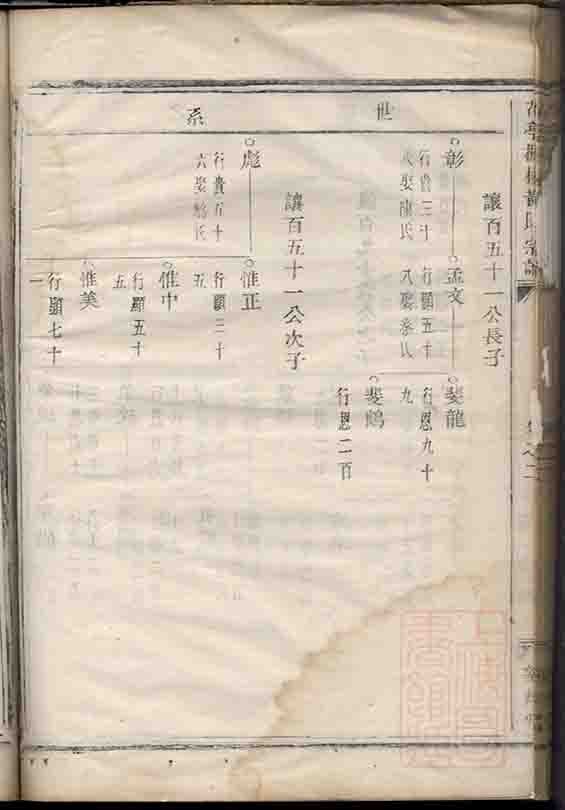 世系
讓百五十一公長子
彰
行貴三十
八娶陳氏
孟文
行顯五十
八娶孫氏
斐龍
行恩九十
九
斐鶴
行恩二百
讓百五十一公次子
彪
行貴五十
六娶
氏
惟正
行顯二十
五
惟中
行顯五十
五
惟美
行顯七十
一